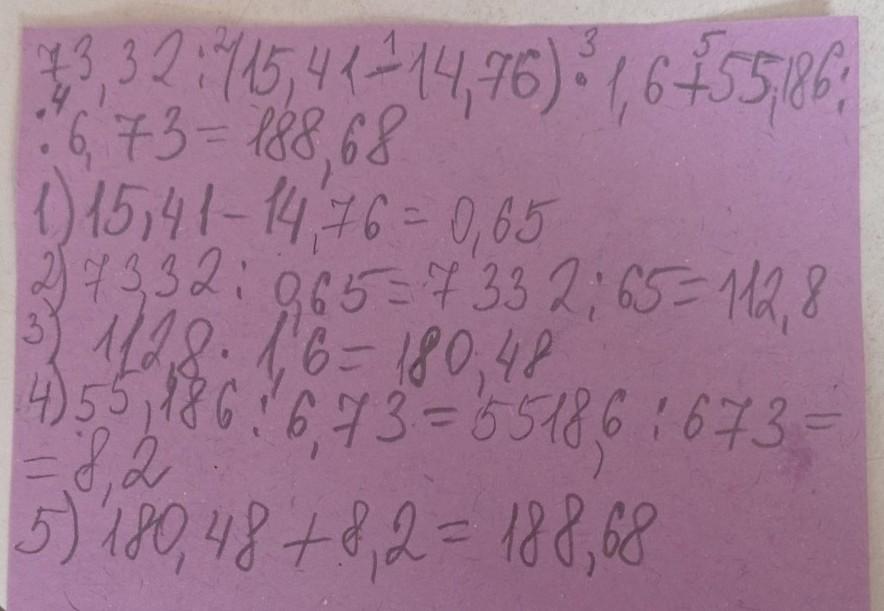 73,32 :² (15,41 -¹ 14,76) ·³ 1,6 +⁵ 55,186 :
:⁴ 6,73 = 188,68
1) 15,41 - 14,76 = 0,65
2) 73,32 : 0,65 = 7332 : 65 = 112,8
3) 112,8 · 1,6 = 180,48
4) 55,186 : 6,73 = 5518,6 : 673 =
= 8,2
5) 180,48 + 8,2 = 188,68